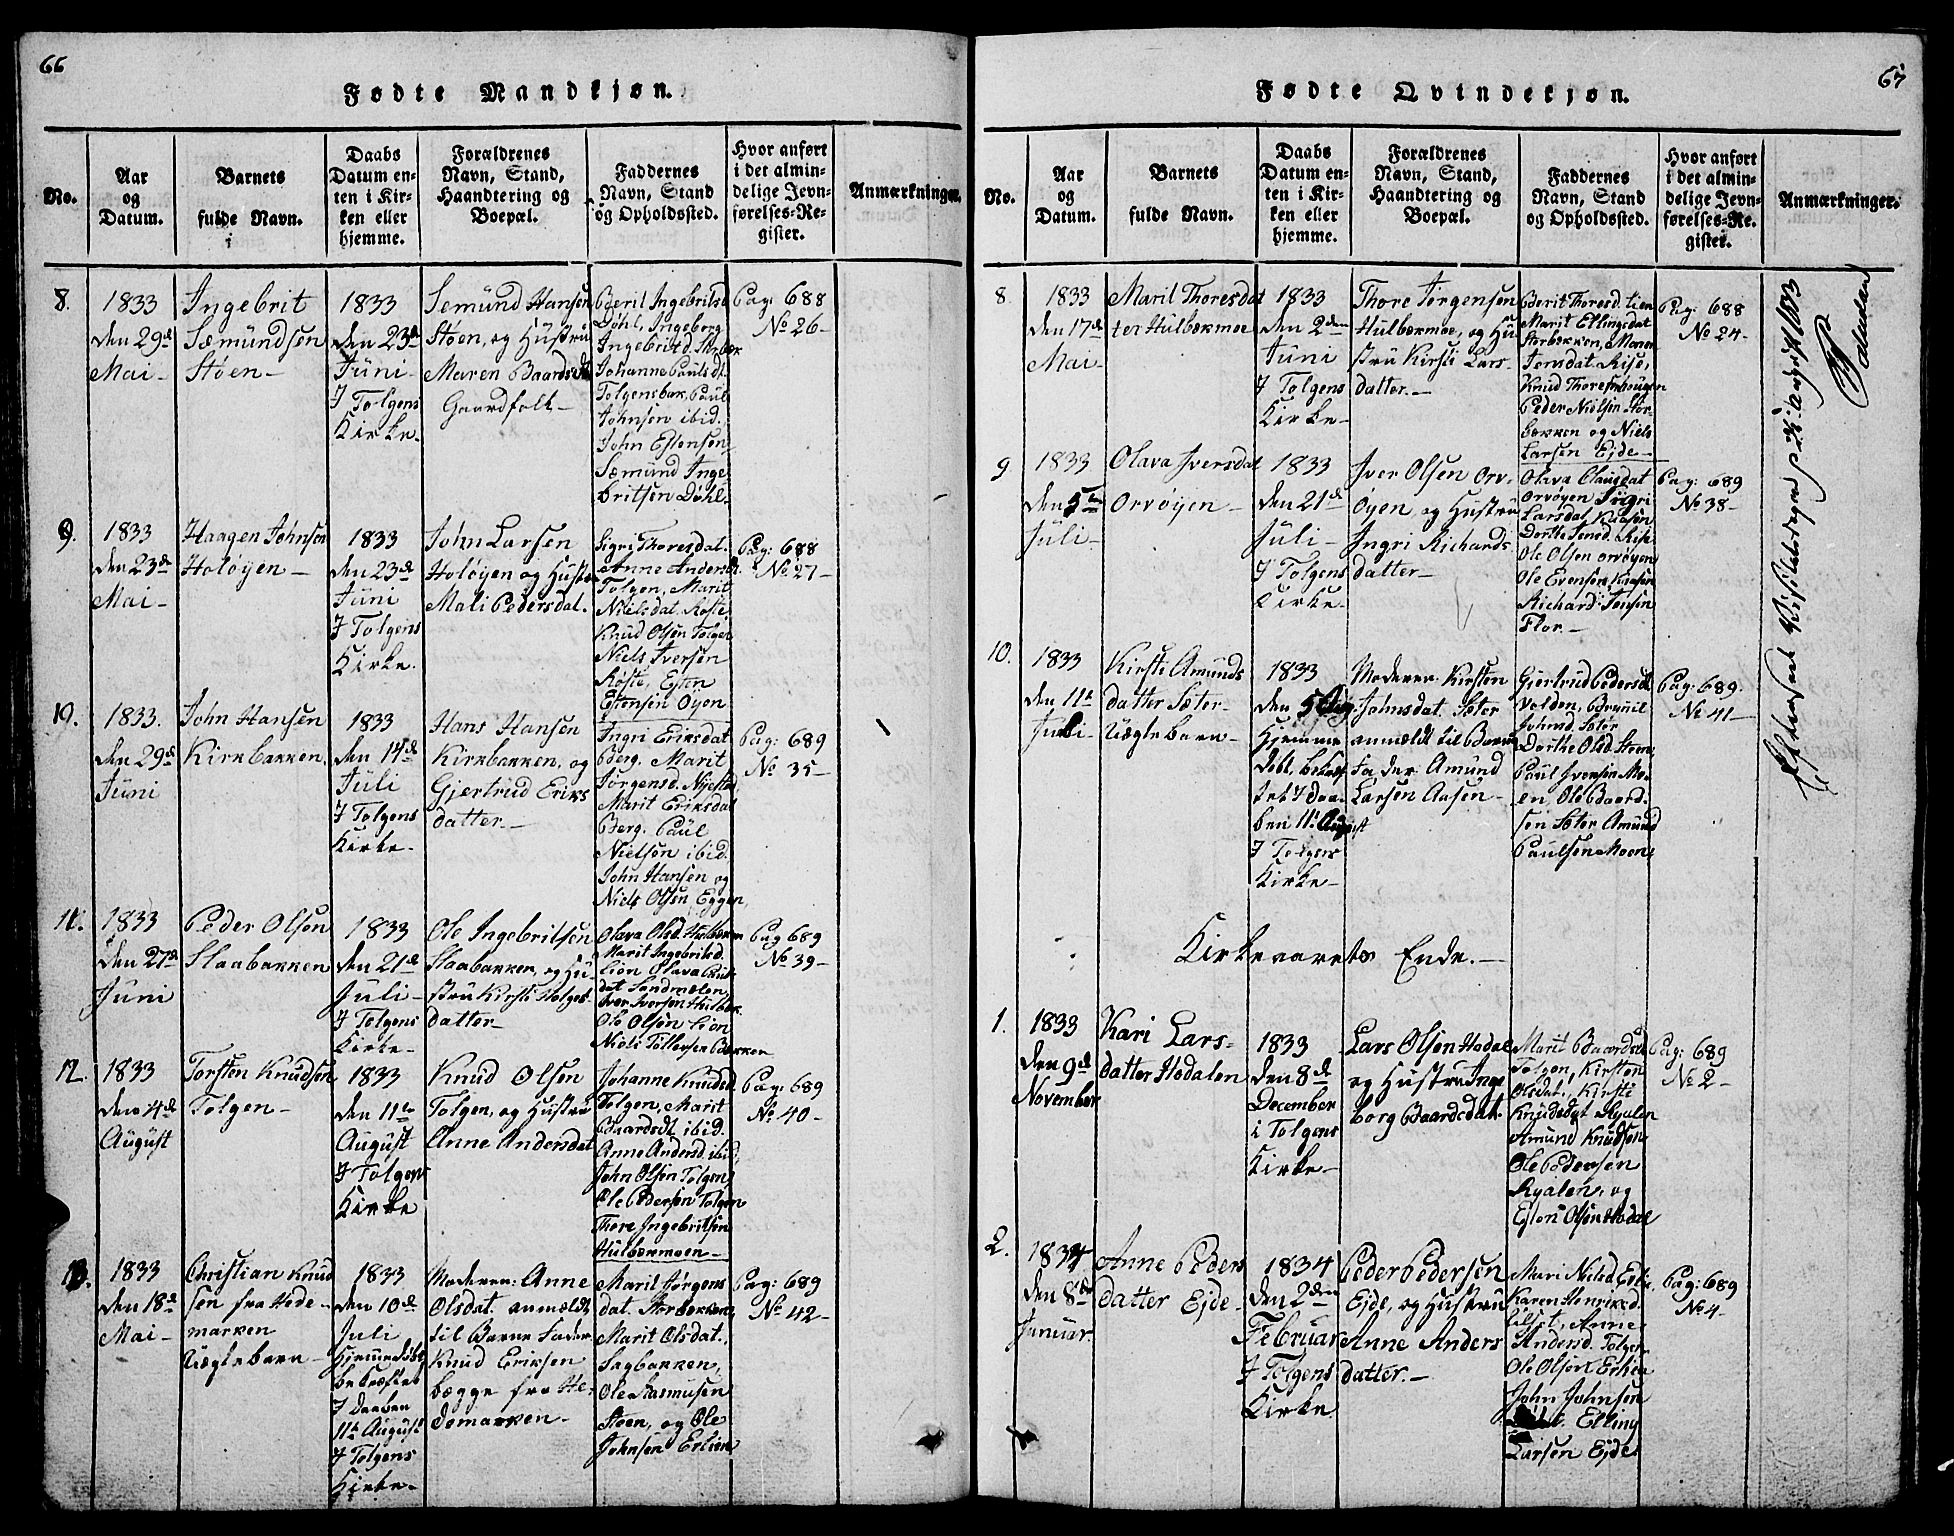 66
Fødte Mandkjøn.
No.
Aar
og
Datum.
Barnets
fulde Navn.
Daabs
Datum en-
ten i Kir-
ken eller
hjemme.
Forældrenes
Navn, Stand,
Haandtering og
Boepæl.
Faddernes
Navn, Stand
og Opholdssted.
Hvor anført
i det almin-
delige Jevn-
førelses-Re-
gister.
Anmærkninger.
8.
1833
den 29de
Mai-
Ingebrit
Sæmundsen
Støen-
1833
den 23de
Juni-
I Tolgens
Kirke.
Semund Hansen
Støen, og Hustru
Maren Baardsdt
Gaardfolk-
Berit Ingebritsd.
Døhl, Ingeborg
Ingebritd. Storbæk
Johanne Paulsdt.
Tolgensbak, Paul
Johnsen ibid.
John Estensen
Sæmund Inge
britsen Døhl.
Pag: 688
No 26-
9.
1833
den 23de
Mai-
Haagen Johnsen
Holøyen-
1833
den 23de
Juni
I Tolgens
Kirke.
John Larsen
Holøyen og Hustru
Mali Pedersdat.
Sigri Thoresdat.
Anne Andersd.
Tolgen, Marit
Nielsdat, Røste
Knud Olsen Tolgen
Niels Iversen
Røste, Esten
Estensen Øyen
Pag: 688
No 27-
10.
1833.
den 29de
Juni
John Hansen
Kirkbakken.
1833
den 14de
Juli
I Tolgens
Kirke-
Hans Hansen
Kirkbakken, og
Gjertrud Eriks
datter.-
Ingri Eriksdat
Berg. Marit
Jørgensd. Nysted
Marit Eriksdat
Berg. Paul
Nielsen ibid.
John Hansen og
Niels Olsen Eggen
Pag: 689
No 35-
11.
1833
den 27de
Juni
Peder Olsen
Slaabakken
1833
den 21de
Juli-
I Tolgens
Kirke-
Ole Ingebritsen
Slaabakken, og Hu-
stru Kirsti Holges-
datter-
Olava Olsd.
Marit Ingebritsd.
Lien Olava
dat Sandmælen
Iver Iversen
Ole Olsen Lien
Niels Tollefsen Bakken
Pag 689
No 39-
12.
1833
den 4de
August
Torsten Knudsen
Tolgen-
1833
den 11te
August
I Tolgens
Kirke
Knud Olsen
Tolgen, og Hustru
Anne Andersdat
Johanne Knudsd.
Tolgen, Marit
Baardsdt ibid.
Anne Andersd. ibid.
John Olsen Tolgen
Ole Pedersen Tolgen
Thore Ingebritsen
Hulbækmoen-
Pag: 689
No 40-
13.
1833
den 18de
Mai-
Christian Knud
sen fra Hede-
marken
Uægtebarn-
1833
den 10de
Juli
Hjemmedøbt
bekræftet
I Daaben
11te August
I Tolgens
Kirke-
Moderen: Anne
Olsdat. anmældt
til Barne Fader
Knud Eriksen
begge fra He-
demarken-
Marit Jørgens
dat. Storbækken
Marit Olsdat.
Sagbakken,
Ole Rasmusen
Støen, og Ole
Johnsen Erlien
Pag: 689
No 42-
67
Fødte Qvindekjøn.
No.
Aar
og
Datum.
Barnets
fulde Navn.
Daabs
Datum en-
ten i Kir-
ken eller
hjemme.
Forældrenes
Navn, Stand,
Haandtering og
Boepæl.
Faddernes
Navn, Stand
og Opholdssted.
Hvor anført
i det almin-
delige Jevn-
førelses-Re-
gister.
Anmærkninger.
8
1833
den 17de
Mai-
Maril Thoresdat
ter Hulbækmoe
1833
den 2den
Juni
I Tolgens
Kirke-
Thore Jørgensen
Hulbækmoe, og Hu
stru Kirsti Lars-
datter.-
Berit Thoresd. Lien
Marit Ellingsdat
Storbækken,
Jensdat Rise,
Knud
Peder Nielsen Stor-
bækken og Niels
Larsen Ejde-
Pag: 688
No 24-
9
1833
den 5te
Juli-
Olava Iversdat
Orvøyen-
1833
den 21de
Juli-
I Tolgens
Kirke-
Iver Olsen Orv-
øyen, og Hustru
Ingri Richards
datter-
Olava Olausdat
Orvøyen Ingri
Larsdat
Dorthe Jensd. Rise
Ole Olsen Orvøyen
Ole Evensen
Richard Jensen
Flor.-
Pag: 689
No 38-
10.
1833
den 11te
Juli-
Kirsti Amunds
datter Sæter
Uægtebarn-
1833
den 5 Aug
Hjemme
døbt, bekræf
tet I Daa-
ben 11te August
I Tolgens
Kirke-
Moderen: Kirsten
Johnsdat. Sæter
anmældt til Barne
Fader Amund
Larsen Aasen-
Gjertrud Pedersdt
Volden,
Johnsd Sæter
Dorthe Olsd.
Paul Iversen Mo-
en, Ole Baard-
sen Sæter Amund
Paulsen Moen
Pag: 689.
No 41-
Kirkeaarets Ende.-
1.
1833
den 9de
November
Kari Lars-
datter Hodalen
1833
den 8de
December
i Tolgens
Kirke-
Lars Olsen Hodal
og Hustru Inge
borg Baardsdat.
Marit Baardsdt
Tolgen, Kirsten
Olsdat. Kirsti
Knudsdat Ryalen
Amund Knudsen
Ole Pedersen
Ryalen, og
Esten Olsen Hodal
Pag: 689
No 2-
2.
1834
den 8de
Januar.
Anne Peders
datter Ejde-
1834
den 2den
Februar
I Tolgens
Kirke
Peder Pedersen
Ejde, og Hustru
Anne Anders
datter.-
Mari Nielsd
Karen Henriksd.
Anne
Andersd. Tolgen
Ole Olsen Erlien
John Johnsen
Elling
Larsen Ejde
Pag: 689
No 4-